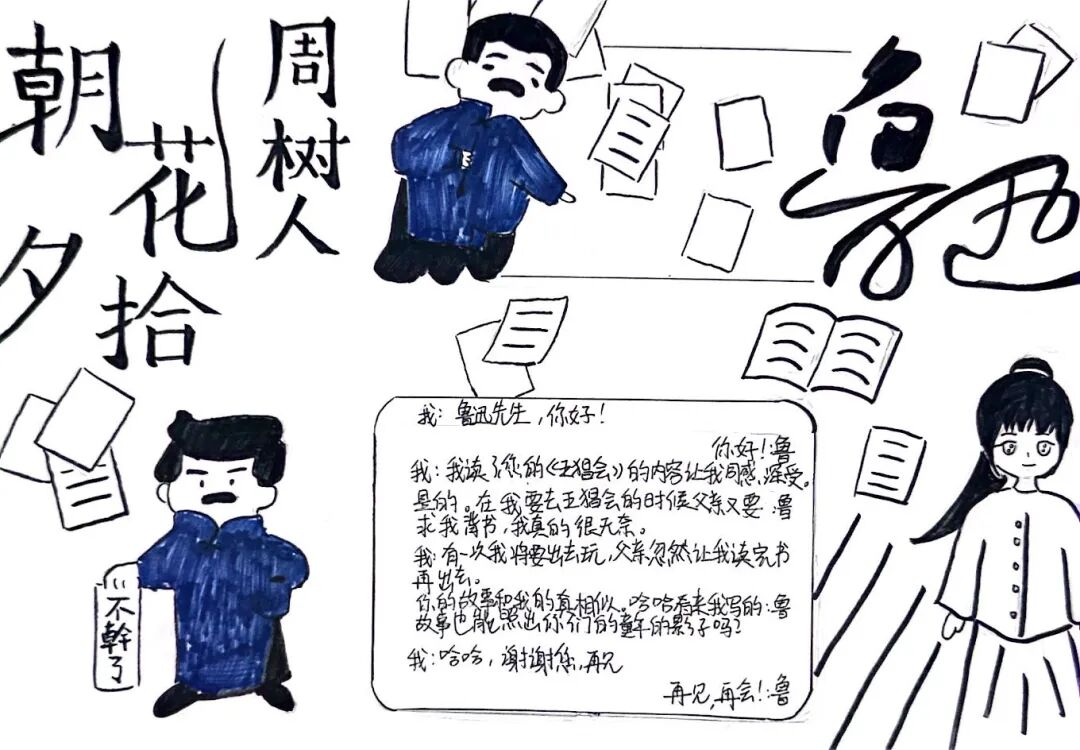 朝花夕拾
周树人
鲁迅
不幹了
我：鲁迅先生，你好！
你好！：鲁
我：我读了您的《五猖会》的内容让我同感，深受。
是的。在我要去五猖会的时候父亲又要：鲁
求我背书，我真的很无奈。
我：有一次我将要出去玩，父亲忽然让我读完书
再出去。
你的故事和我的真相似。哈哈看来我写的：鲁
故事也能照出你们的童年的影子吗？
我：哈哈，谢谢您，再见
再见，再会！：鲁